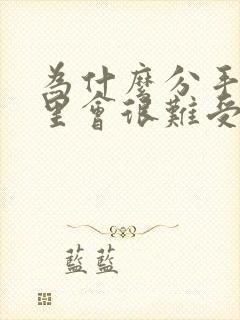 为什麼分手
里會很難受
藍藍